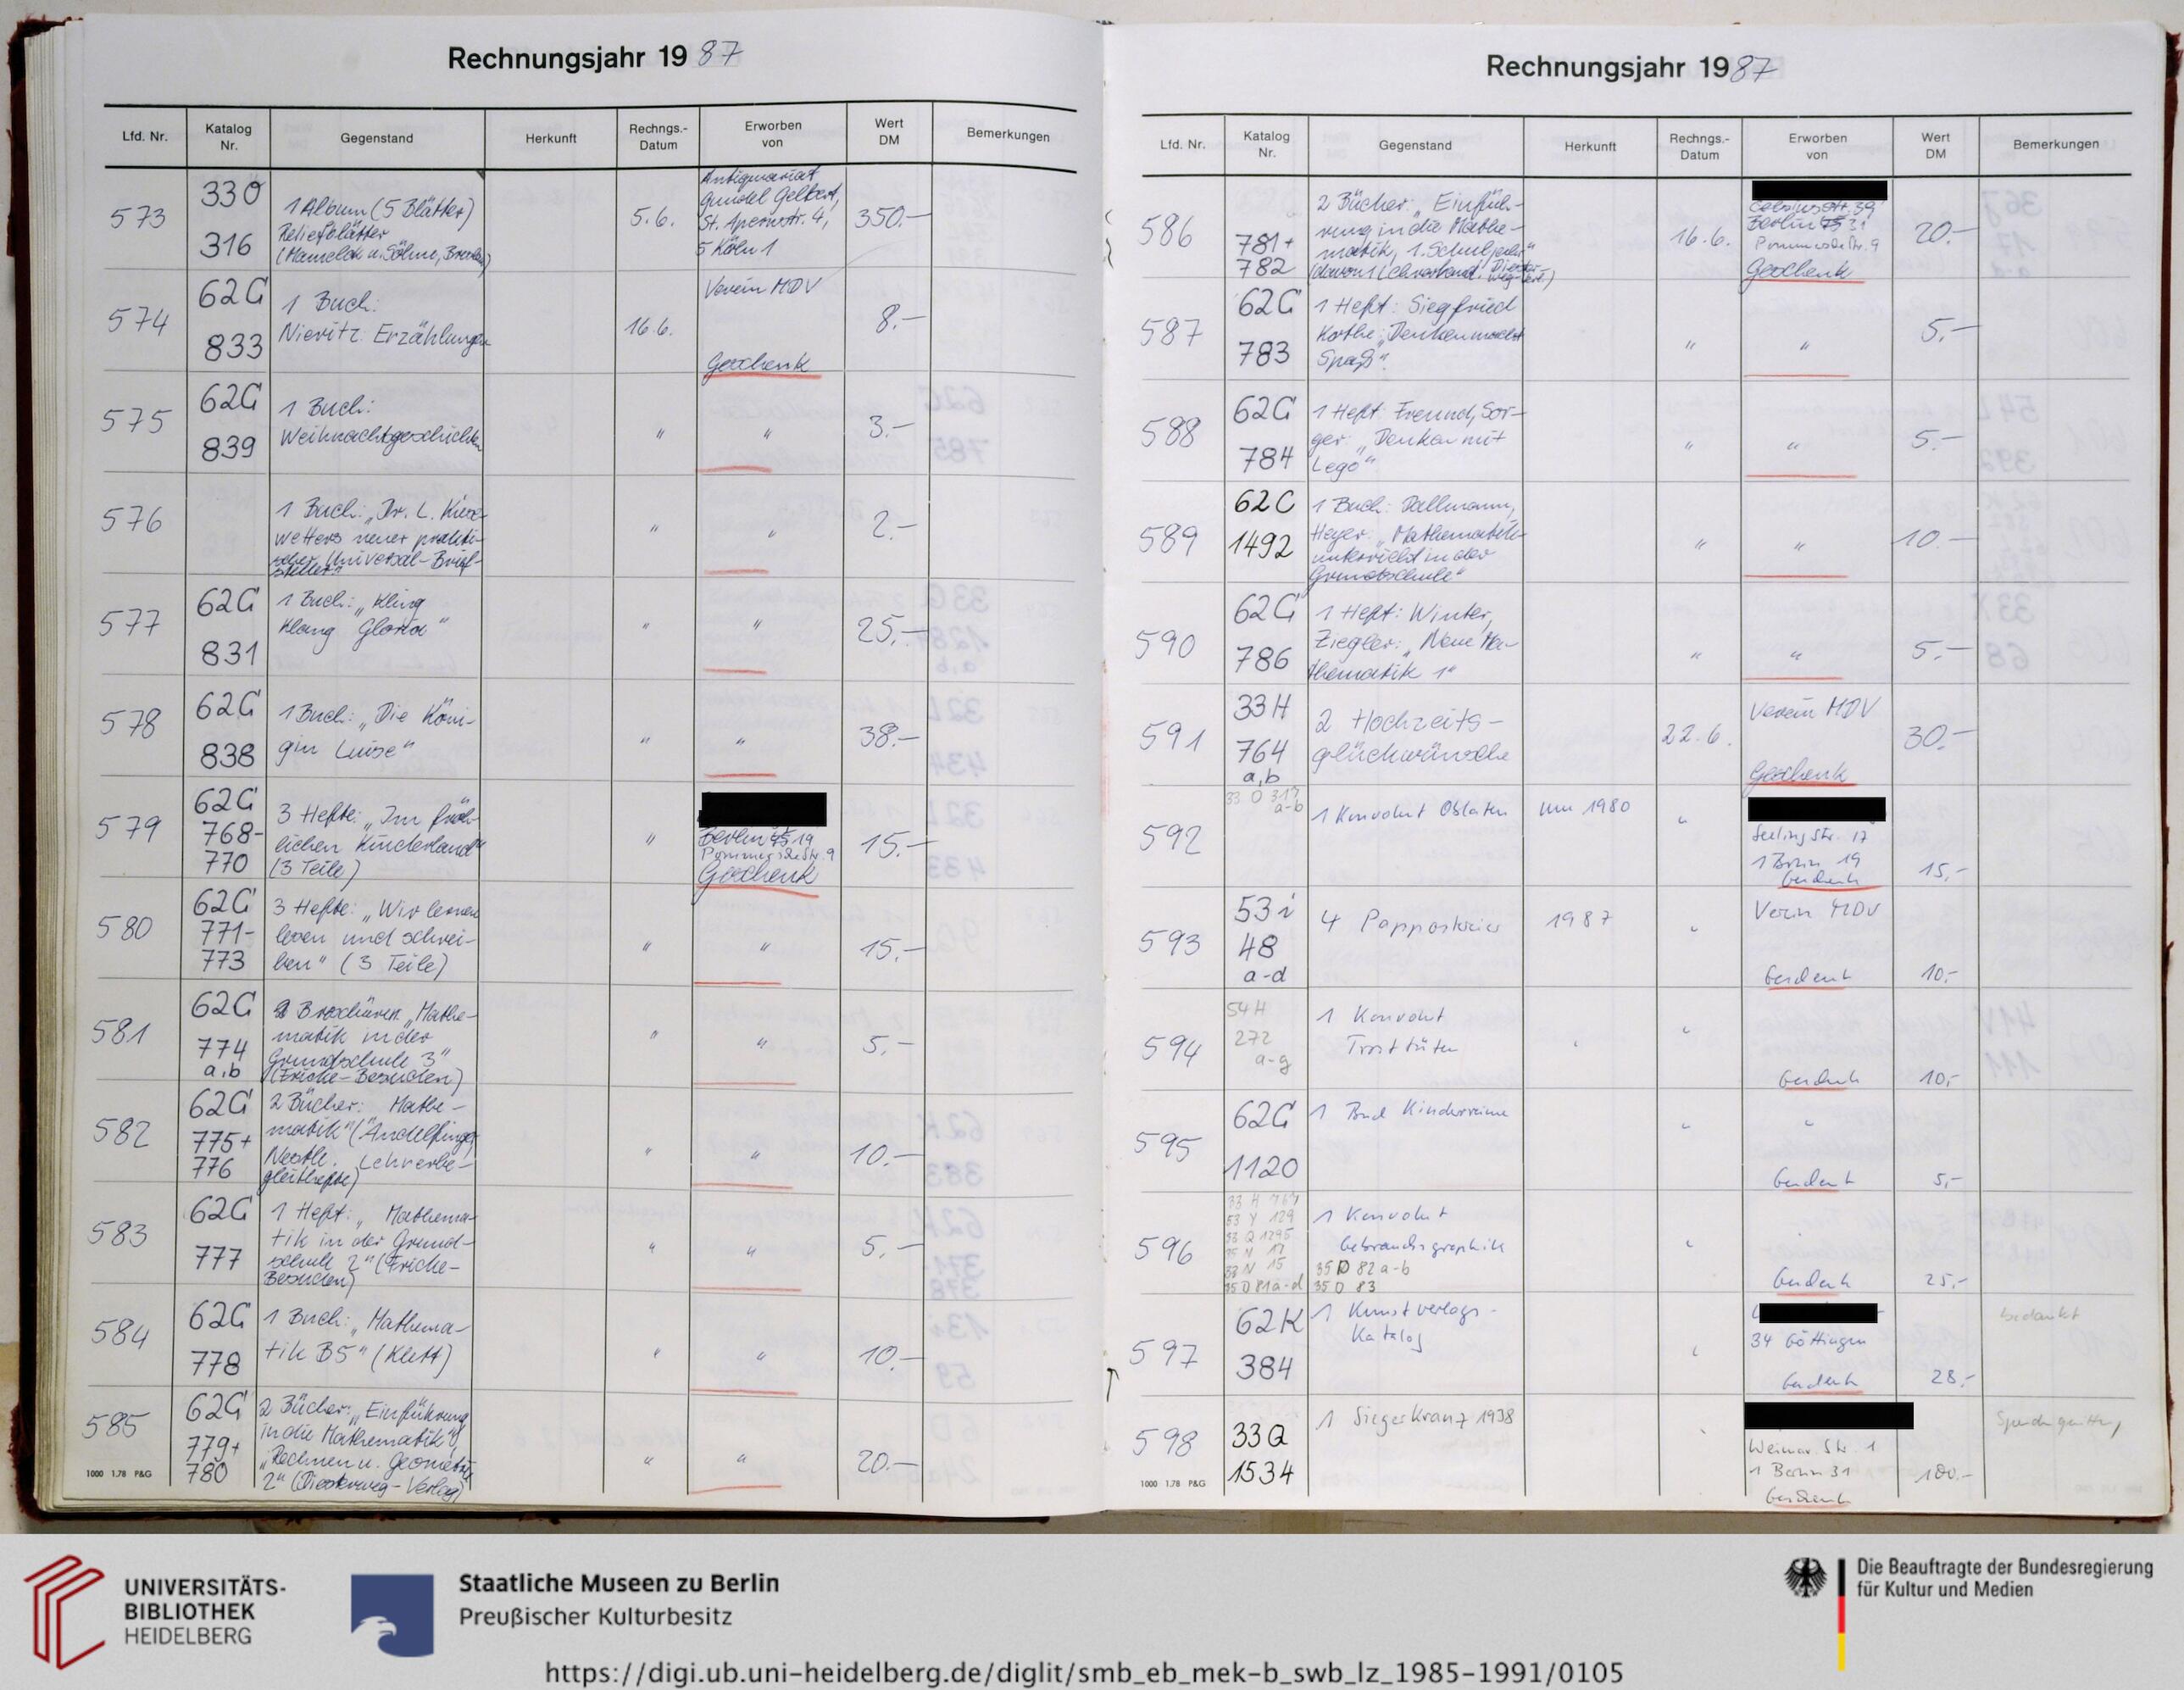 Rechnungsjahr 1987
Lfd. Nr.
Katalog Nr.
Gegenstand
Herkunft
Rechngs.-Datum
Erworben von
Wert DM
Bemerkungen
573
33 O
316
1 Album (5 Blätter)
Reliefblätter
(Hamelok u. Söhne,
5.6.
Antiquariat
Gundel Gelbert,
St. Apernstr. 4,
5 Köln 1
350.-
574
62G
833
1 Buch:
Nieritz: Erzählungen
16.6.
Verein MDV
Geschenk
8.-
575
62G
839
1 Buch:
Weihnachtsgeschichten
"
"
3.-
576
1 Buch: „Dr. L. Kiese-
wetters neuer prakti-
scher Universal-Brief-
steller"
"
"
2.-
577
62G
831
1 Buch: „Kling
Klang Gloria"
"
"
25.-
578
62G
838
1 Buch: „Die Köni-
gin Luise"
"
"
38.-
579
62G
768-
770
3 Hefte: „Im fröh-
lichen Kinderland"
(3 Teile)
"
Berlin 19
Pommerschestr. 9
Geschenk
15.-
580
62G
771-
773
3 Hefte: „Wir lernen
lesen und schrei-
ben" (3 Teile)
"
"
15.-
581
62G
774
a,b
2 Broschüren „Mathe-
matik in der
Grundschule 3"
(Fricke-Besuden)
"
"
5.-
582
62G
775+
776
2 Bücher: Mathe-
matik" (Andelfinger,
Nestle. Lehrerbe-
gleithefte)
"
"
10.-
583
62G
777
1 Heft: „Mathema-
tik in der Grund-
schule 2" (Fricke-
Besuden)
"
"
5.-
584
62G
778
1 Buch: „Mathema-
tik B5" (Klett)
"
"
10.-
585
62G
779+
780
2 Bücher: „Einführung
in die Mathematik",
„Rechnen u. Geometrie
2" (Diesterweg-Verlag)
"
"
20.-
1000 1.78 P&G
Rechnungsjahr 1987
Lfd. Nr.
Katalog Nr.
Gegenstand
Herkunft
Rechngs.-Datum
Erworben von
Wert DM
Bemerkungen
586
781+
782
2 Bücher: „Einfüh-
rung in die Mathe-
matik, 1. Schuljahr"
(davon 1 Lehrerband,
16.6.
Celsiusstr. 39
Berlin
Pommerschestr. 9
Geschenk
20.-
587
62G
783
1 Heft: Siegfried
Kothe: „Denken macht
Spaß".
"
"
5.-
588
62G
784
1 Heft: Freund, Sor-
ger: „Denken mit
Lego"
"
"
5.-
589
62C
1492
1 Buch: Dallmann,
Heyer: „Mathematik-
unterricht in der
Grundschule"
"
"
10.-
590
62G
786
1 Heft: Winter,
Ziegler: „Neue Ma-
thematik 1"
"
"
5.-
591
33H
764
a,b
2 Hochzeits-
glückwünsche
22.6.
Verein MDV
Geschenk
30.-
592
33 O 317
a-b
1 Konvolut Oblaten
um 1980
"
Seelingstr. 17
1 Berlin 19
Geschenk
15,-
593
53 i
48
a-d
4 Pappostereier
1987
"
Verein MDV
Geschenk
10,-
594
54 H
272
a-g
1 Konvolut
Trosttüten
"
"
Geschenk
10,-
595
62G
1120
1 Band Kinderreime
"
"
Geschenk
5,-
596
33 H 767
53 Y 129
35 N 15
35 D 81 a-d
1 Konvolut
Gebrauchsgraphik
35 D 82 a-b
35 D 83
"
Geschenk
25,-
597
62K
384
1 Kunstverlags-
Katalog
"
34 Göttingen
Geschenk
28,-
bedankt
598
33Q
1534
1 Siegerkranz 1938
Weimar. Str. 1
1 Berlin 31
Geschenk
100,-
1000 1.78 P&G
UNIVERSITÄTS-
BIBLIOTHEK
HEIDELBERG
Staatliche Museen zu Berlin
Preußischer Kulturbesitz
Die Beauftragte der Bundesregierung
für Kultur und Medien
https://digi.ub.uni-heidelberg.de/diglit/smb_eb_mek-b_swb_lz_1985-1991/0105